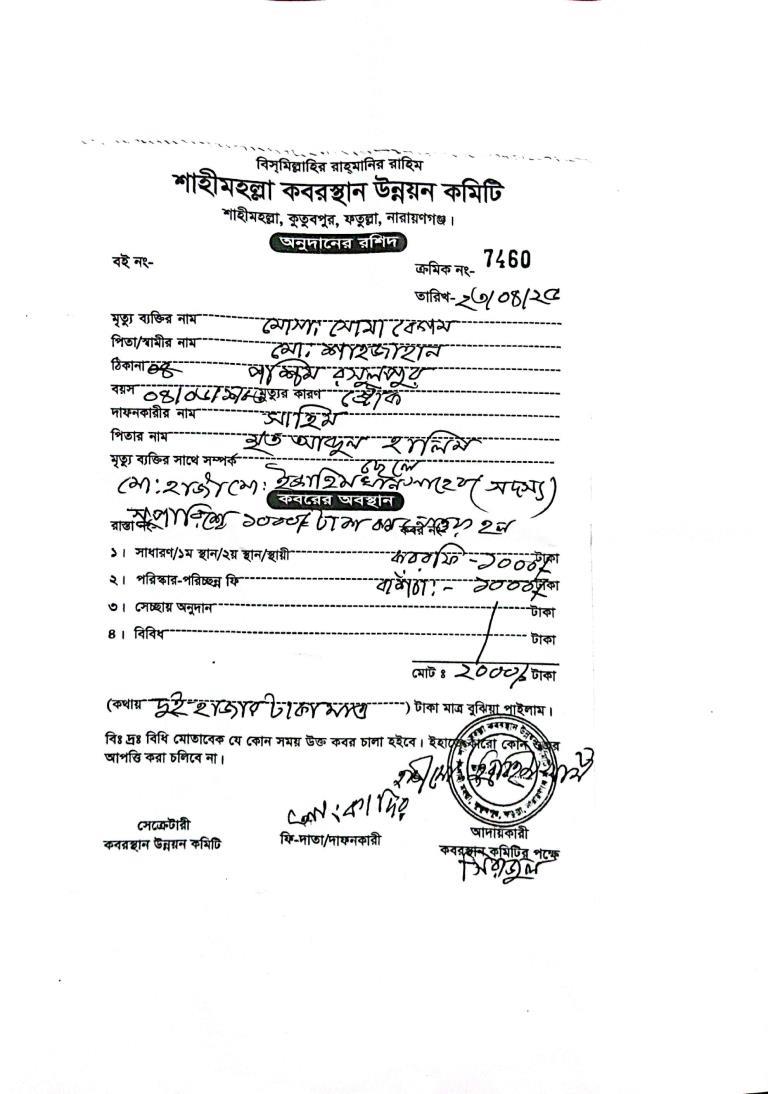 বিস্‌মিল্লাহির রাহ্‌মানির রাহিম
শাহীমহল্লা কবরস্থান উন্নয়ন কমিটি
শাহীমহল্লা, কুতুবপুর, ফতুল্লা, নারায়ণগঞ্জ।
অনুদানের রশিদ
বই নং-
ক্রমিক নং- 7460
তারিখ- ২৩/০৪/২৫
মৃত্যু ব্যক্তির নাম মোসা: সোমা বেগম
পিতা/স্বামীর নাম মো: শাহজাহান
ঠিকানা পশ্চিম রসুলপুর
বয়স মৃত্যুর কারণ স্ট্রোক
দাফনকারীর নাম সাহিম
পিতার নাম মৃত আব্দুল হালিম
মৃত্যু ব্যক্তির সাথে সম্পর্ক ছেলে
মো: হাজী মো: ইব্রাহিম খলিল সাহেব (সদস্য)
কবরের অবস্থান
রাস্তা নং সুপারিশে ১০০০/ টাকা কম নেওয়া হল কবর নং
১। সাধারণ/১ম স্থান/২য় স্থান/স্থায়ী কবর ফি - ১০০০/ টাকা
২। পরিস্কার-পরিচ্ছন্ন ফি বাঁশ চা: - ১০০০/ টাকা
৩। সেচ্ছায় অনুদান টাকা
৪। বিবিধ টাকা
মোট ঃ ২০০০/ টাকা
(কথায় দুই হাজার টাকা মাত্র) টাকা মাত্র বুঝিয়া পাইলাম।
বিঃ দ্রঃ বিধি মোতাবেক যে কোন সময় উক্ত কবর চালা হইবে। ইহাতে কারো কোন ওজর
আপত্তি করা চলিবে না।
মো: কাদির
সেক্রেটারী
কবরস্থান উন্নয়ন কমিটি
ফি-দাতা/দাফনকারী
আদায়কারী
কবরস্থান কমিটির পক্ষে
সিরাজুল